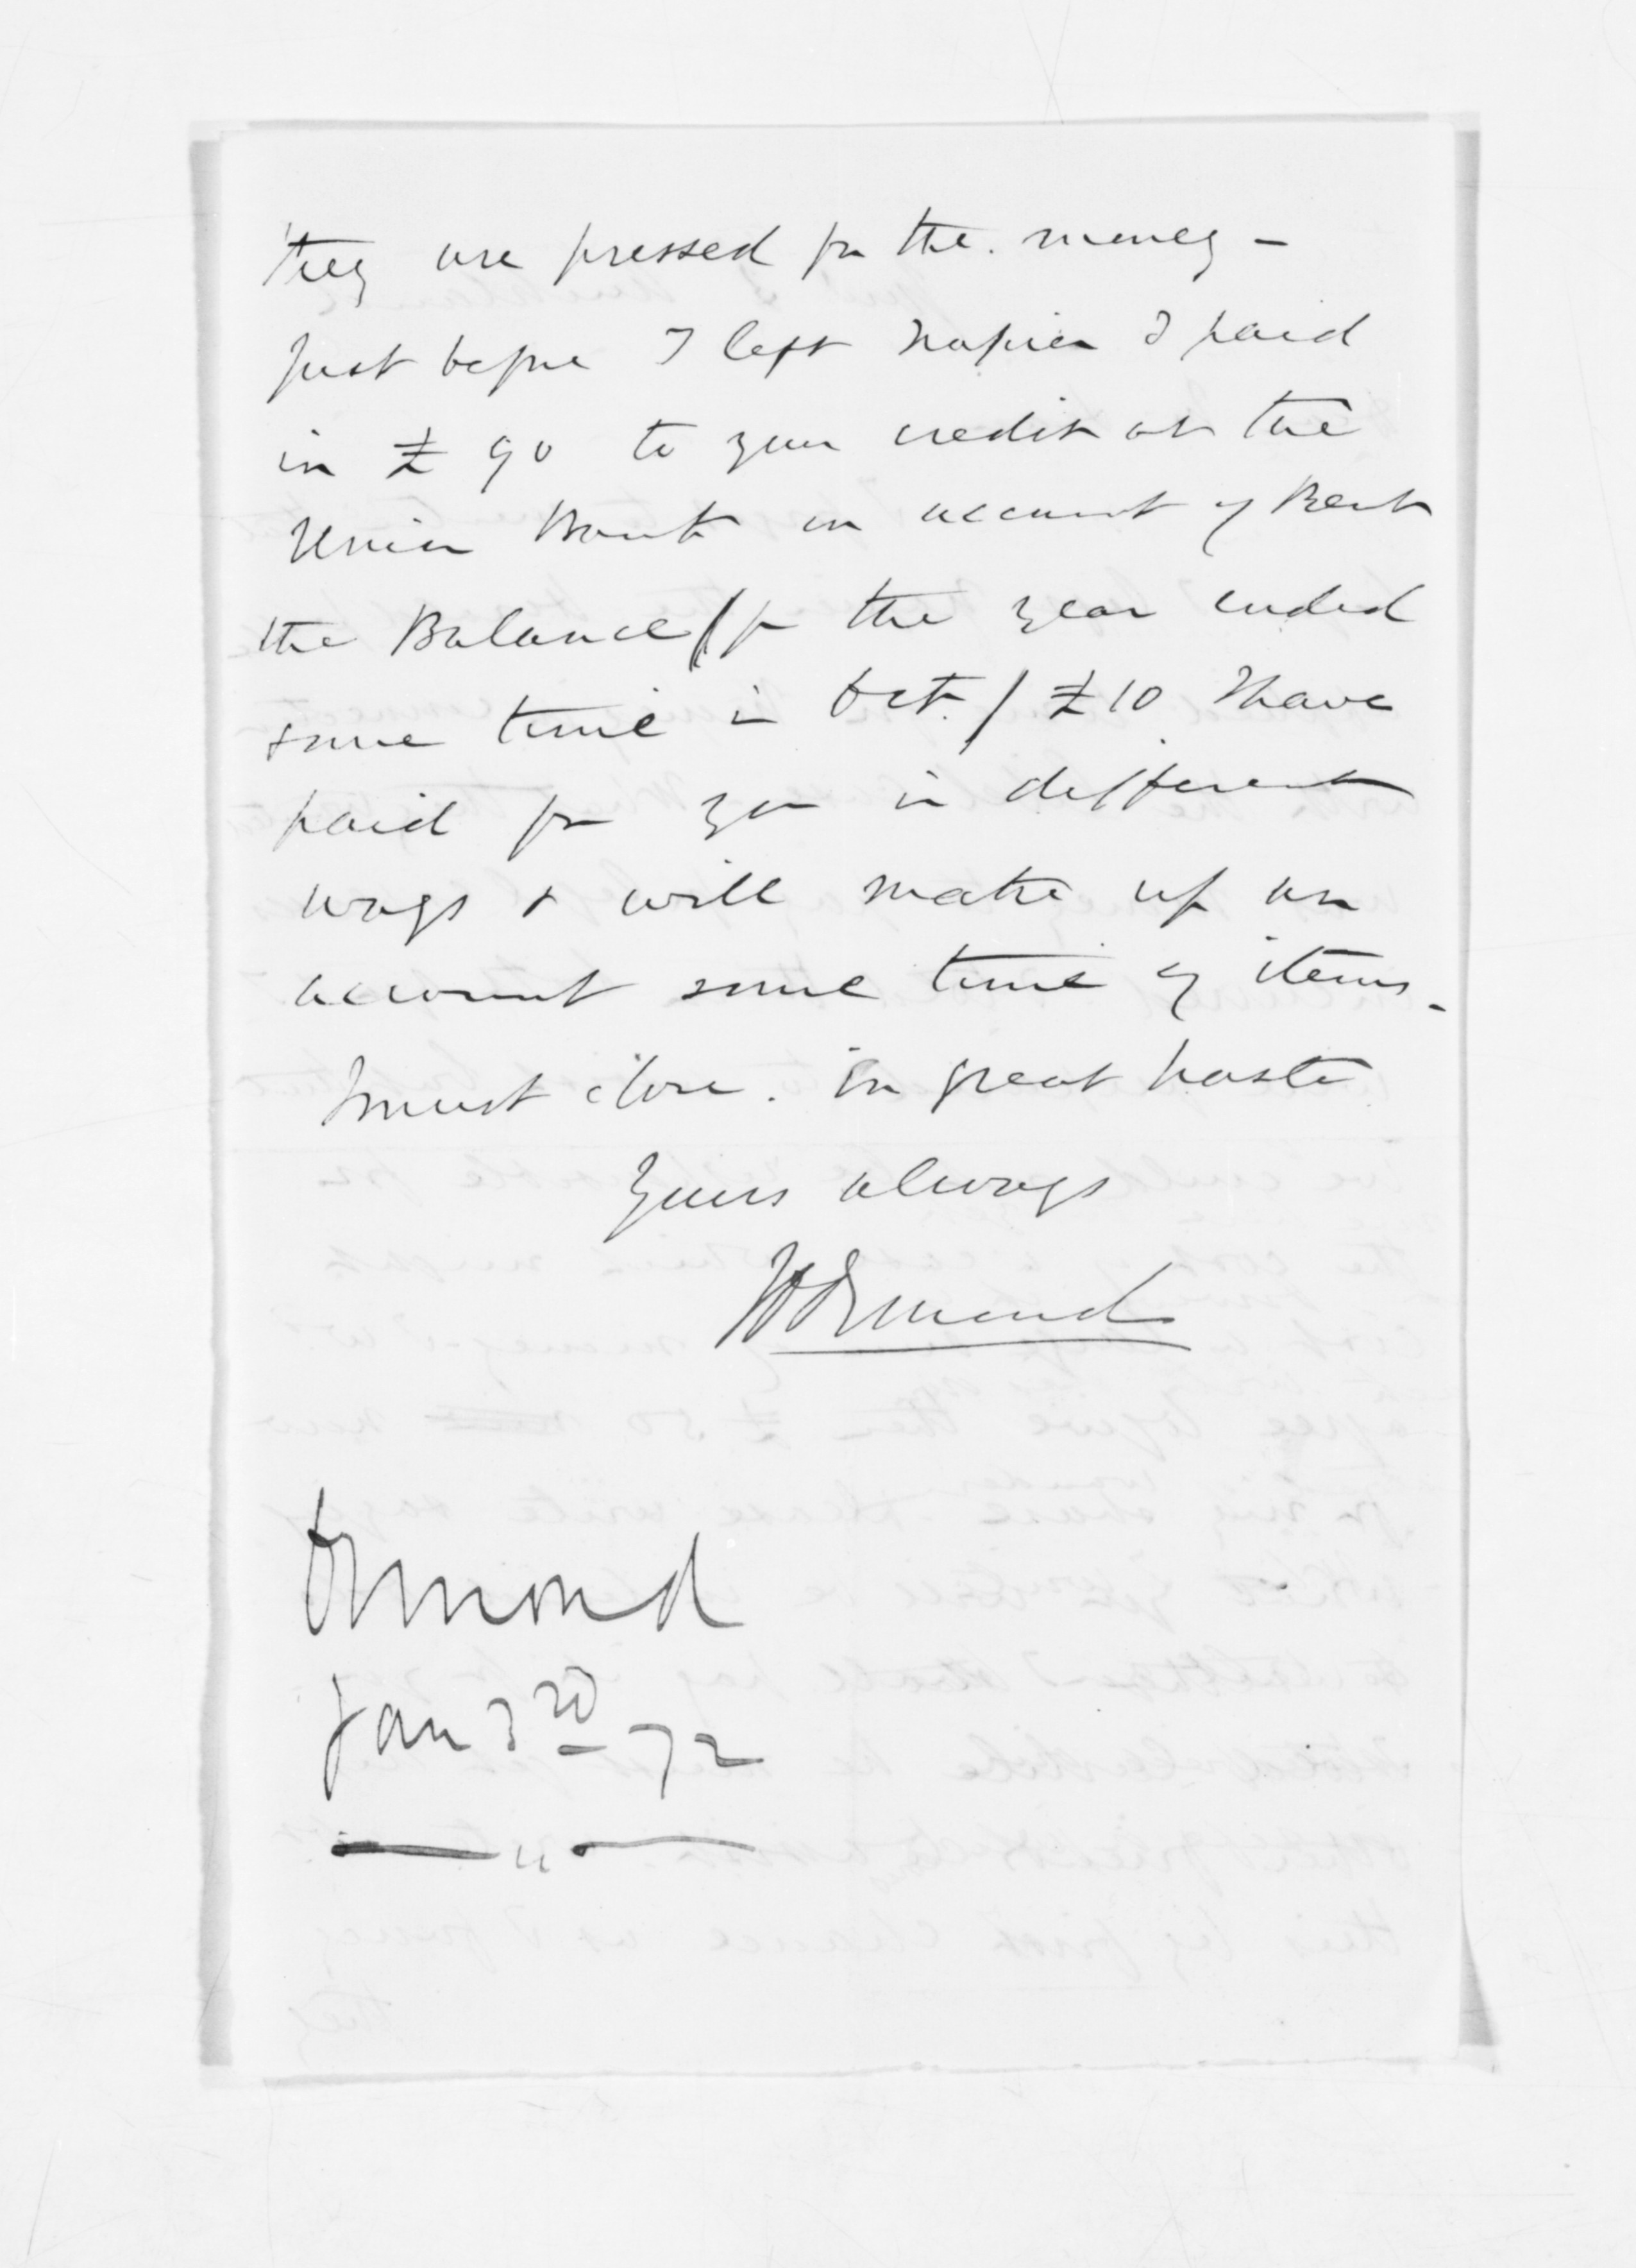 they are pressed for the money –
Just before I left Napier I paid
in £90 to your credit at the
Union Bank on account of Rent
the Balance (for the year ended
some time in Oct.) £10 I have
paid for you in different
ways & will make up an
account some time of items.
I must close. In great haste
Yours always
Ormond
Ormond
Jan 3rd 72